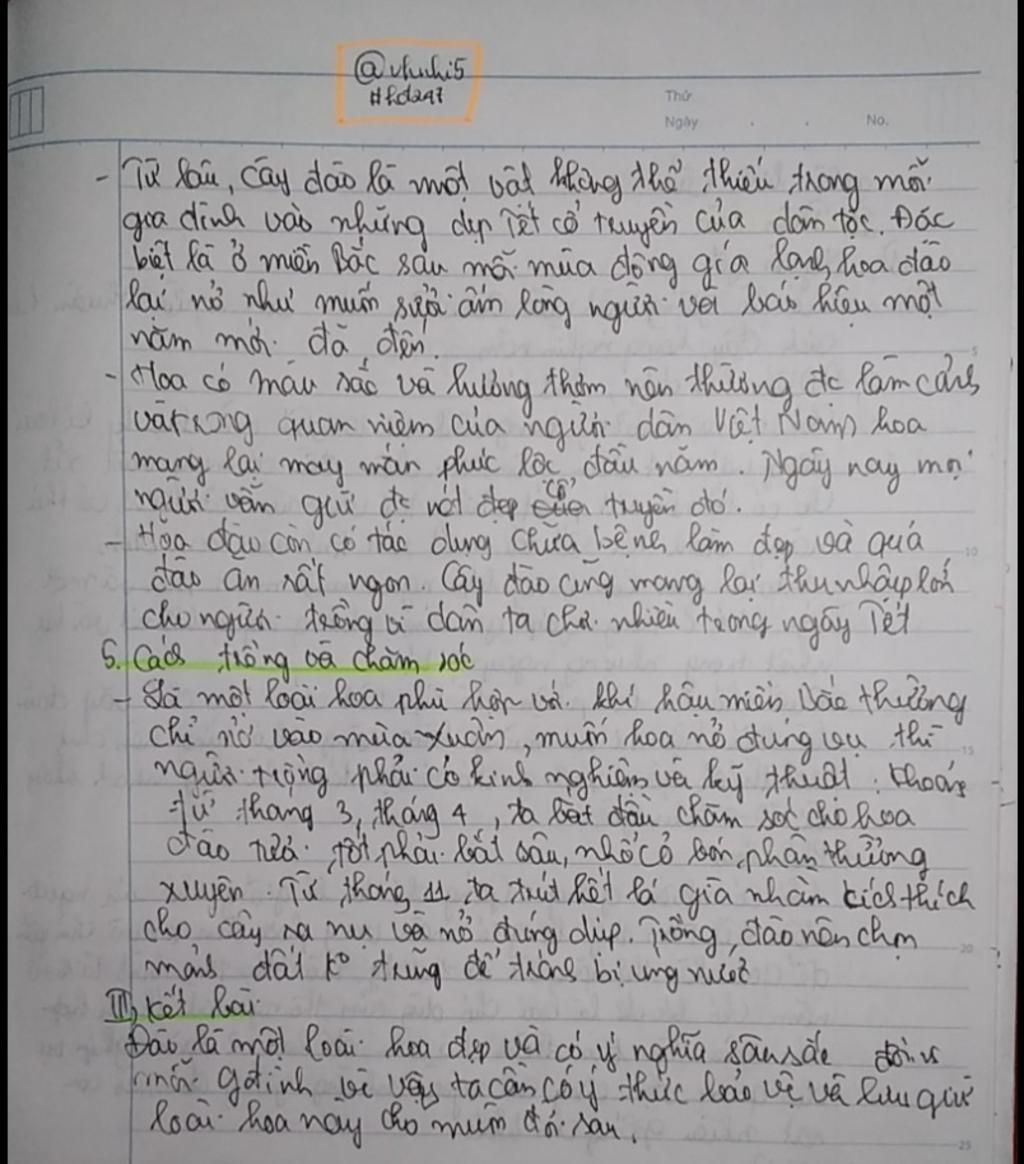 @vhuhi5
#hd247
Thứ
Ngày . . No.
- Từ lâu, cây đào là một vật không thể thiếu trong mỗi
gia đình vào những dịp Tết cổ truyền của dân tộc. Đặc
biệt là ở miền Bắc sau mỗi mùa đông giá lạnh, hoa đào
lại nở như muốn sưởi ấm lòng người với báo hiệu một
năm mới đã đến.
- Hoa có màu sắc và hương thơm nên thường đc làm cảnh
vật trong quan niệm của người dân Việt Nam hoa
mang lại may mắn phúc lộc đầu năm. Ngày nay mọi
người vẫn giữ đc nét đẹp cổ truyền đó.
- Hoa đào còn có tác dụng chữa bệnh, làm đẹp và quả
đào ăn rất ngon. Cây đào cũng mang lại thu nhập lớn
cho người trồng vì dân ta chơi nhiều trong ngày Tết
5. Cách trồng và chăm sóc
- Là một loài hoa phù hợp với khí hậu miền Bắc thường
chỉ nở vào mùa xuân, muốn hoa nở đúng vụ thì
người trồng phải có kinh nghiệm và kỹ thuật. Khoảng
từ tháng 3, tháng 4, ta bắt đầu chăm sóc cho hoa
đào phải bắt sâu, nhổ cỏ bón phân thường
xuyên. Từ tháng 11 ta trút hết lá già nhằm kích thích
cho cây ra nụ và nở đúng dịp. Trồng đào nên chọn
mảnh đất ko trũng để tránh bị úng nước
III, Kết bài
Đào là một loài hoa đẹp và có ý nghĩa sâu sắc đối vs
mỗi gđình vì vậy ta cần có ý thức bảo vệ và lưu giữ
loài hoa này cho muôn đời sau.
5
10
15
20
25